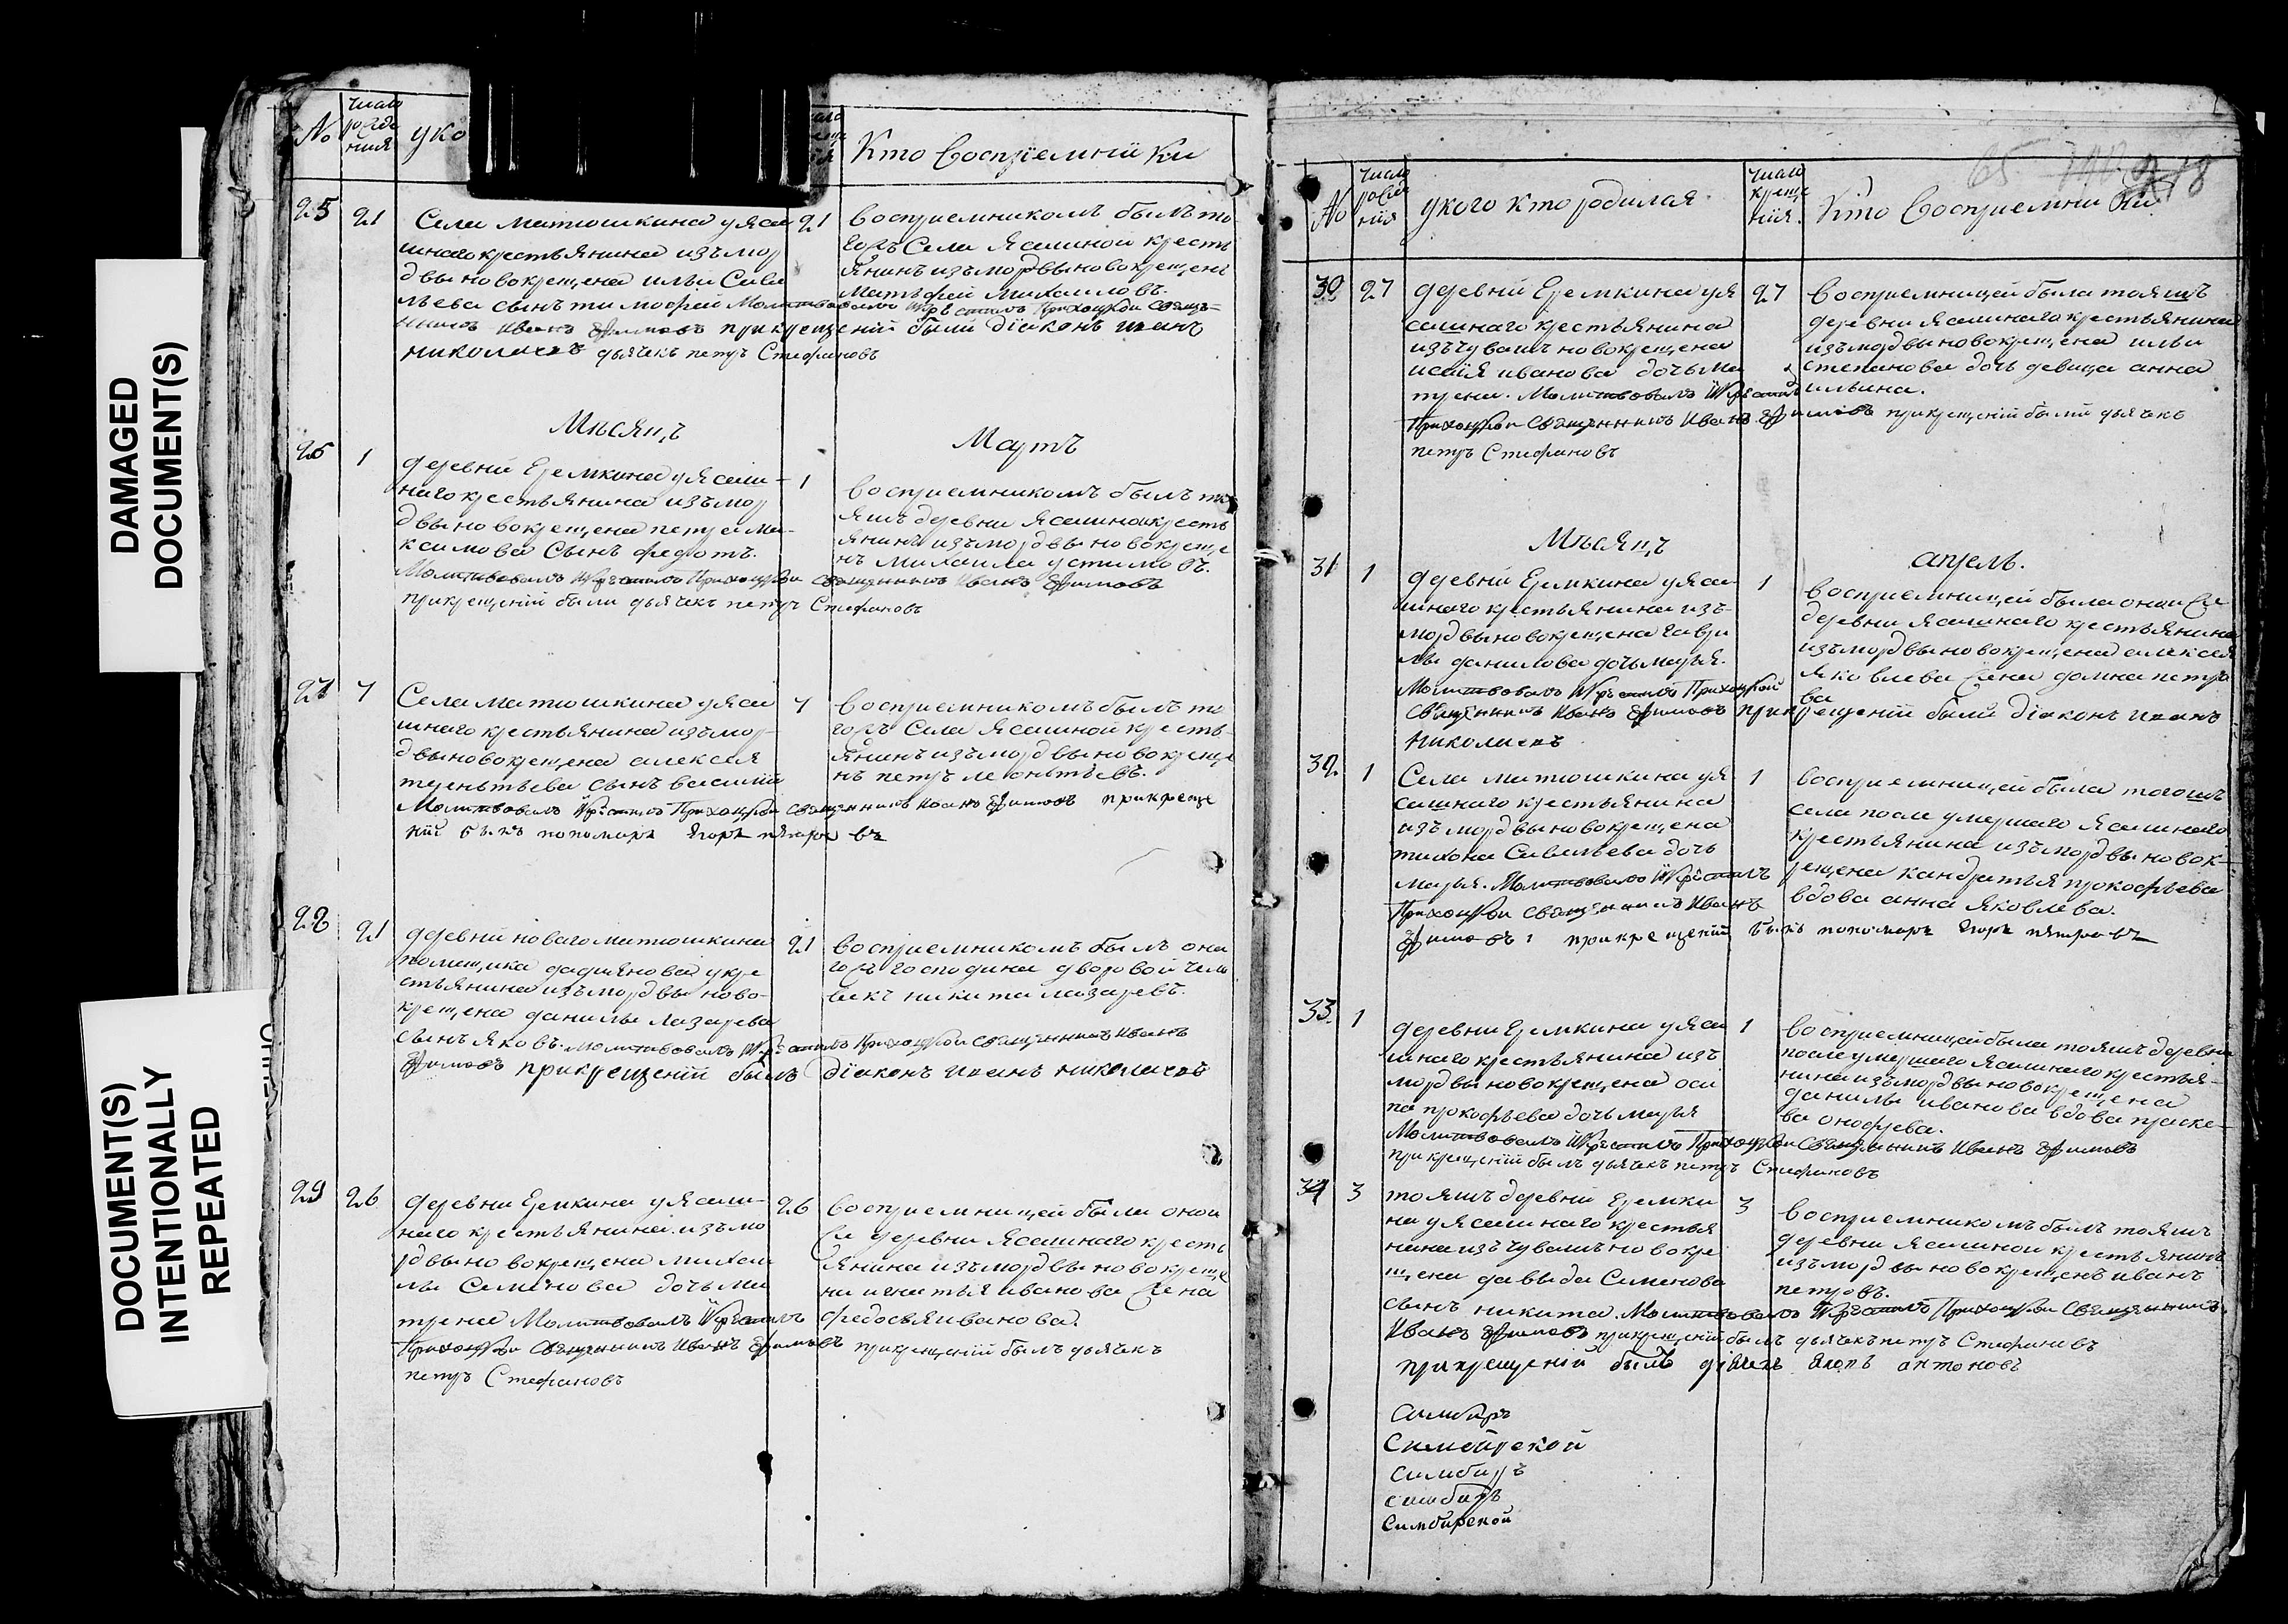 DAMAGED
DOCUMENT(S)
DOCUMENT(S)
INTENTIONALLY
REPEATED
№
число
рожде
ния
уко
Кто восприемники
25
21
Села матюшкина уяса
шнаго крестьянина изъ мор
двы новокрещена ильи Саве
льева сынъ тимофей Молитвовалъ и крестилъ Приходской Священ
никъ Иванъ Ефимовъ при крещении были диаконъ иванъ
николаевъ дьячекъ петръ Стефановъ
21
восприемникомъ былъ то
гожъ Села Ясашной кресть
янинъ изъ мордвы новокрещенъ
Матьфей михаиловъ.
Мѣсяцъ
Мартъ
26
1
деревни Еремкина уясаш-
наго крестьянина изъ мор
двы новокрещена петра Ма-
ксимова Сынъ федотъ.
Молитвовалъ и крестилъ Приходской священникъ Иванъ Ефимовъ
при крещении были дьячекъ петръ Стефановъ
1
восприемникомъ былъ то
яжъ деревни Ясашной кресть
янинъ изъ мордвы новокреще
нъ михаила устимовъ.
27
7
Села матюшкина уяса
шнаго крестьянина изъ мор-
двы новокрещена алексея
терентьева сынъ василий
Молитвовалъ и крестилъ Приходской священникъ Иванъ Ефимовъ при креще
нии былъ пономарь Егоръ петровъ
7
восприемникомъ былъ то
гожъ Села Ясашной кресть-
янинъ изъ мордвы новокреще
нъ петръ леонтьевъ.
28
21
деревни новаго матюшкина
помещика дадиянова у кре
стьянина изъ мордвы ново-
крещена данилы лазарева
сынъ яковъ. молитвовалъ и крестилъ Приходской священникъ Иванъ
Ефимовъ при крещении былъ диаконъ иванъ николаевъ
21
восприемникомъ былъ она
гожъ господина дворовой чело
векъ никита лазаревъ.
29
26
деревни Еремкина уясаш-
наго крестьянина изъ мо
рдвы новокрещена михаи
лы Семенова дочь ма
трена Молитвовалъ и крестилъ
Приходской Священникъ Иванъ Ефимовъ при крещении былъ дьячекъ
петръ Стефановъ
26
восприемницей была оной
же деревни Ясашнаго кресть
янина изъ мордвы новокреще
на игнатья иванова жена
федосья иванова
№
число
рожде
ния
укого кто родился
число
креще
ния.
Кто восприемники
30
27
деревни Еремкина уя
сашнаго крестьянина
изъ чувашъ новокрещена
исаия иванова дочь ма
трена. Молитвовалъ и крестилъ
Приходской священникъ Иванъ Ефимовъ при крещении были дьячекъ
петръ Стефановъ
27
восприемницей была тояжъ
деревни Ясашнаго крестьянина
изъ мордвы новокрещена ильи
степанова дочь девица анна
ильина.
Мѣсяцъ
апрель.
31
1
деревни Еремкина уяса
шнаго крестьянина изъ
мордвы новокрещена гаври
лы данилова дочь марья.
Молитвовалъ и крестилъ Приходской
священникъ Иванъ Ефимовъ при крещении были диаконъ иванъ
николаевъ
1
восприемницей была оной же
деревни Ясашнаго крестьянина
изъ мордвы новокрещена алексея
яковлева жена домна петро
ва
32
1
Села матюшкина уя
сашнаго крестьянина
изъ мордвы новокрещена
тихона Савельева дочь
марья. Молитвовалъ и крестилъ
Приходской священникъ Иванъ
Ефимовъ: при крещении былъ пономарь Егоръ петровъ
1
восприемницей была тогожъ
села после умершаго Ясашнаго
крестьянина изъ мордвы новок-
рещена кандратья прокофьева
вдова анна яковлева.
33
1
деревни Еремкина уяса
шнаго крестьянина изъ
мордвы новокрещена оси
па прокофьева дочь марья
Молитвовалъ и крестилъ Приходской Священникъ Иванъ Ефимовъ
при крещении былъ дьячекъ петръ Стефановъ
1
восприемницей была тояжъ деревни
после умершаго Ясашнаго крестья-
нина изъ мордвы новокрещена
данилы иванова вдова праско-
вья онофрева.
34
3
тояжъ деревни Еремки
на уясашнаго крестья
нина изъ чувашъ новокре
щена давыда Семенова
сынъ никита. Молитвовалъ и крестилъ Приходской Священникъ
Иванъ Ефимовъ при крещении былъ дьячекъ петръ Стефановъ
при крещении былъ дьячекъ антоновъ
3
восприемникомъ былъ тояжъ
деревни Ясашной крестьянинъ
изъ мордвы новокрещенъ иванъ
петровъ.
Симбиръ
Симбирской
симбиръ
симбиръ
Симбирской